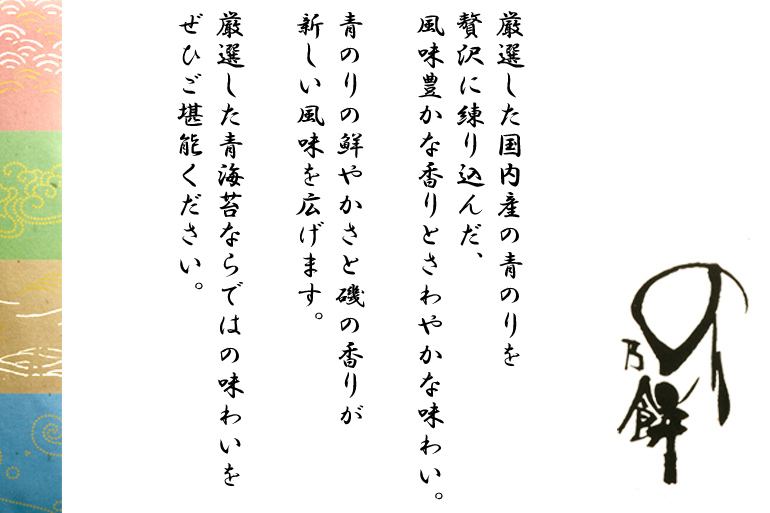 の
乃
餅
厳選した国内産の青のりを
贅沢に練り込んだ、
風味豊かな香りとさわやかな味わい。
青のりの鮮やかさと磯の香りが
新しい風味を広げます。
厳選した青海苔ならではの味わいを
ぜひご堪能ください。